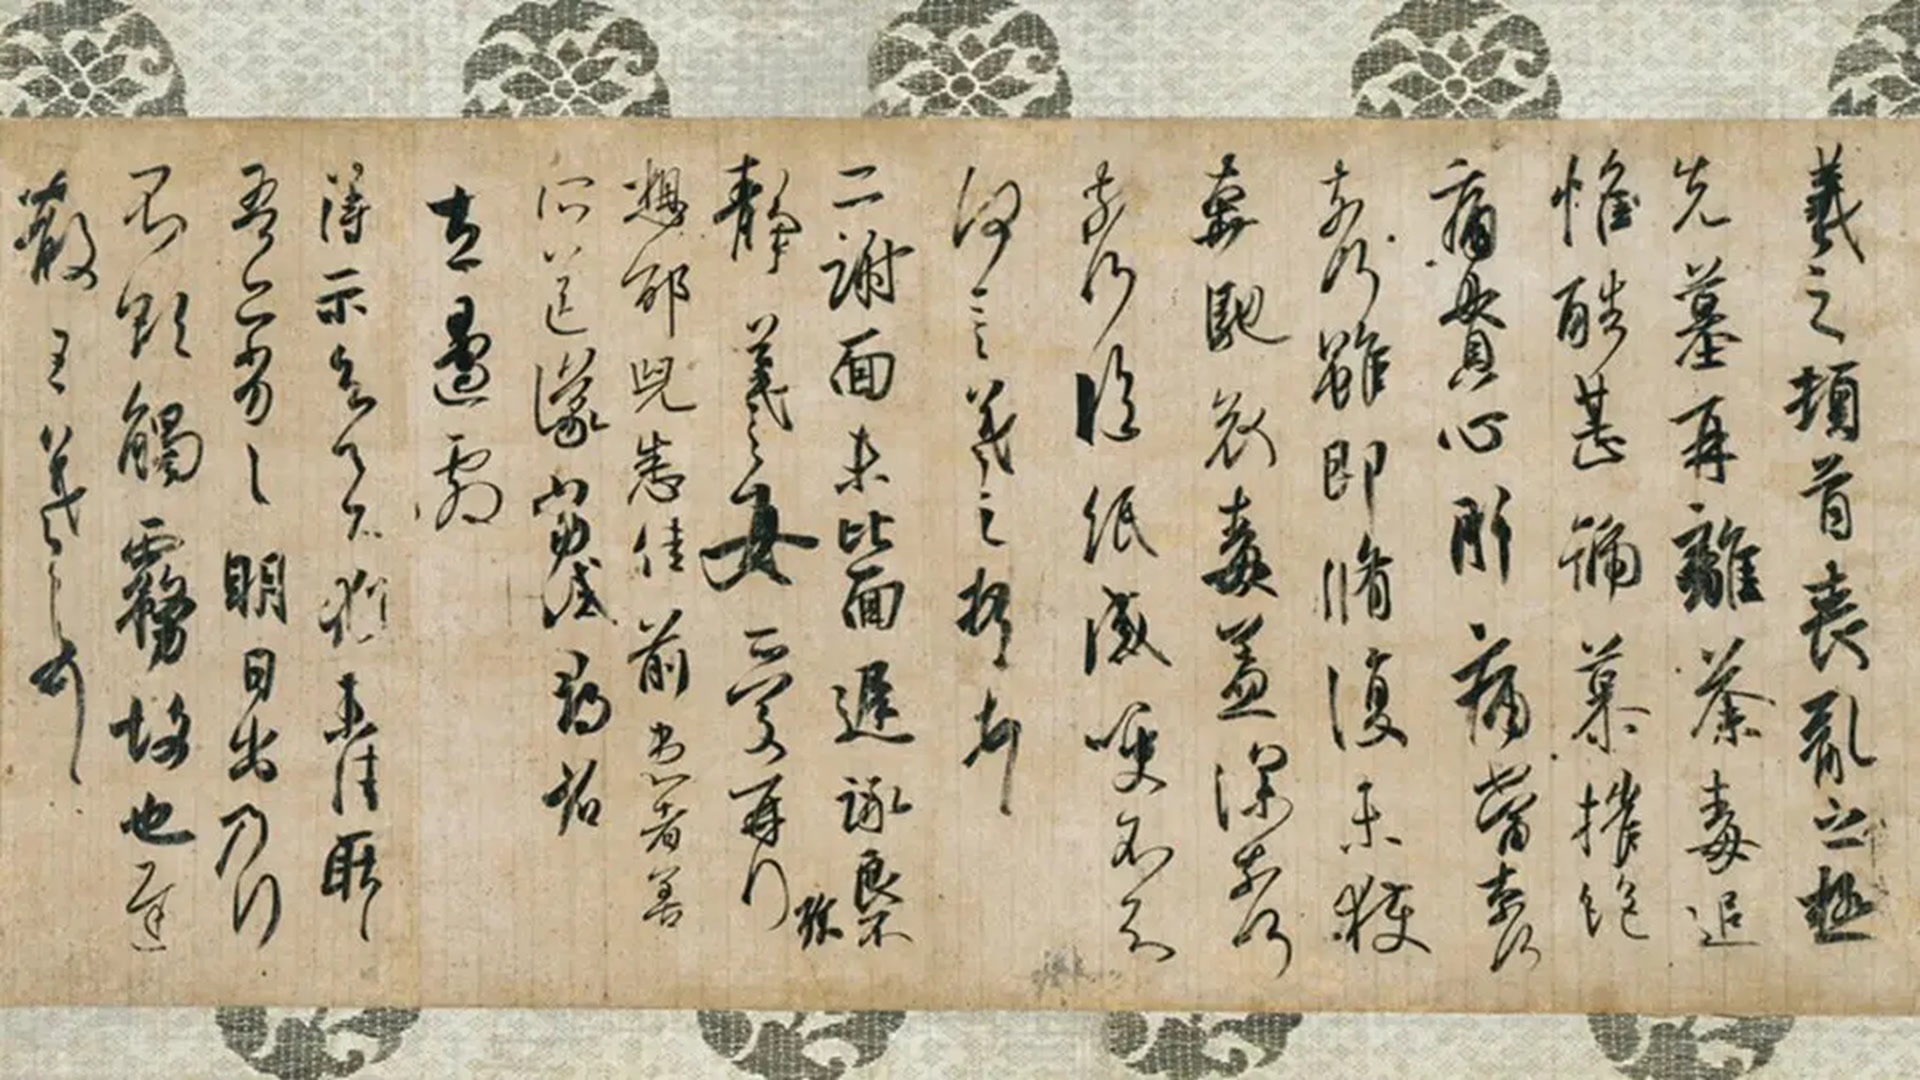 羲之頓首喪亂之極
先墓再離荼毒追
惟酷甚號慕摧絶
痛貫心肝痛當奈何
奈何雖即脩復未獲
奔馳哀毒益深奈何
奈何臨紙感哽不知
何言羲之頓首頓首
二謝面未比面遲詠良不
靜羲之女愛再拜
想邰兒悉佳前患者善
所送議當試尋省
左邊劇
得示知足下猶未佳耿耿
吾亦劣劣明日出乃行
不欲觸霧故也遲
散王羲之頓首